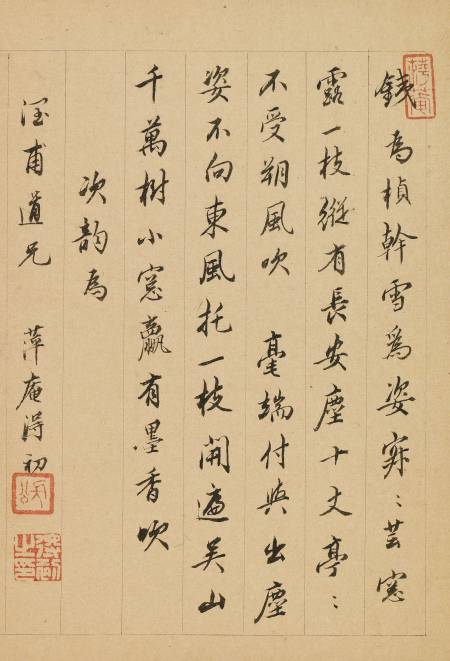 銕為楨幹雪爲姿寂〻芸窓
露一枝縱有長安塵十丈亭〻
不受朔風吹 毫端付與出塵
姿不向東風托一枝開遍吳山
千萬樹小窓贏有墨香吹
次韵為
甫道兄 萍庵得初